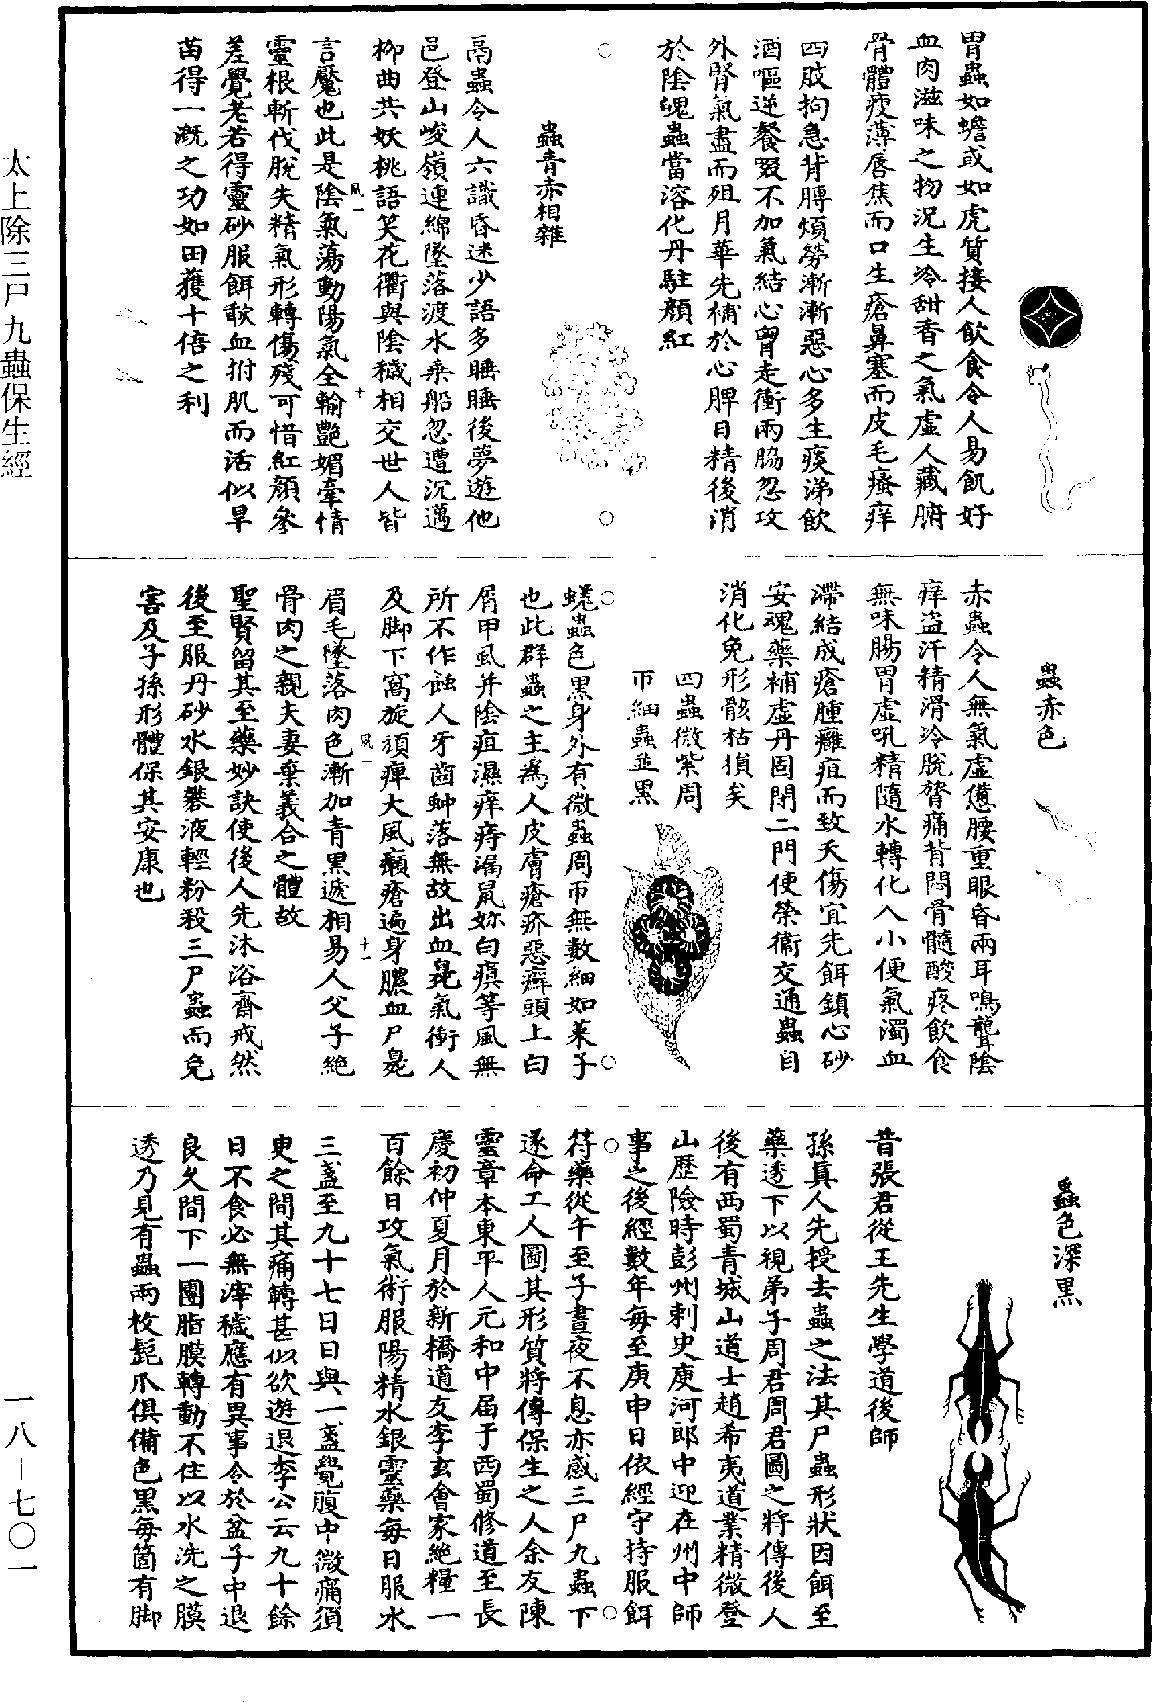 太上除三尸九蟲保生經
一八—七〇一
胃蟲如蟾或如虎質接人飲食令人易飢好
血肉滋味之物況生冷甜香之氣虛人藏腑
骨體瘦薄唇焦而口生瘡鼻塞而皮毛瘙痒
四肢拘急背膊煩勞漸漸惡心多生痰涕飲
酒嘔逆餐啜不加氣結心胷走衝兩脇忽攻
外腎氣盡而殂月華先補於心脾日精後消
於陰魄蟲當溶化丹駐顏紅
蟲青赤相雜
鬲蟲令人六識昏迷少語多睡睡後夢遊他
邑登山峻嶺連綿墜落渡水乘船忽遭沉邁
柳曲共妖桃語笑花衢與陰穢相交世人皆
言魘也此是陰氣蕩動陽氣全輸艷媚牽情
風一
十
靈根斬伐脫失精氣形轉傷殘可惜紅顏參
差覺老若得靈砂服餌歃血拊肌而活似旱
苗得一溉之功如田獲十倍之利
蟲赤色
赤蟲令人無氣虛憊腰重眼昏兩耳鳴聾陰
痒盜汗精滑冷脫膂痛背悶骨髓酸疼飲食
無味腸胃虛吼精隨水轉化入小便氣濁血
滯結成瘡腫癰疽而致夭傷宜先餌鎮心砂
安魂藥補虛丹固閉二門使榮衞交通蟲自
消化免形骸枯損矣
四蟲微紫周
帀細蟲並黑
蜣蟲色黑身外有微蟲周帀無數細如菜子
也此群蟲之主爲人皮膚瘡疥惡癬頭上白
屑甲虱并陰疽濕痒痔漏鼠妳白瘼等風無
所不作蝕人牙齒蚛落無故出血臭氣衝人
及脚下窩旋頑痺大風癩瘡遍身膿血尸臭
風一
十一
眉毛墜落肉色漸加青黑遞相易人父子絕
骨肉之親夫妻棄義合之體故
聖賢留其至藥妙訣使後人先沐浴齋戒然
後至服丹砂水銀礬液輕粉殺三尸蟲而免
害及子孫形體保其安康也
蟲色深黑
昔張君從王先生學道後師
孫真人先授去蟲之法其尸蟲形狀因餌至
藥透下以視弟子周君周君圖之將傳後人
後有西蜀青城山道士趙希夷道業精微登
山歷險時彭州刺史庾河郎中迎在州中師
事之後經數年每至庚申日依經守持服餌
符藥從午至子晝夜不息亦感三尸九蟲下
遂命工人圖其形質將傳保生之人余友陳
靈章本東平人元和中屆于西蜀修道至長
慶初仲夏月於新橋道友李玄會家絕糧一
百餘日攻氣術服陽精水銀靈藥每日服水
三盞至九十七日日與一盞覺腹中微痛須
臾之間其痛轉甚似欲遊退李公云九十餘
日不食必無滓穢應有異事令於盆子中退
良久間下一團脂膜轉動不住以水洗之膜
透乃見有蟲兩枚髭爪俱備色黑每箇有脚